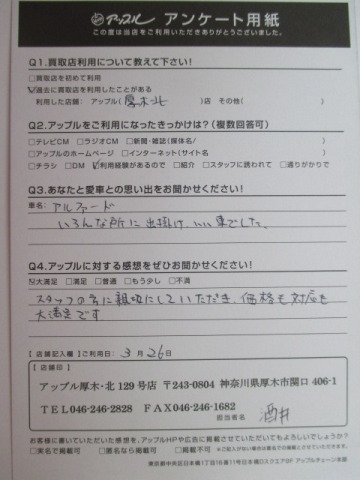 アップル アンケート用紙
この度は当店をご利用いただきありがとうございました。
Q1.買取店利用について教えて下さい!
□買取を初めて利用
☑過去に買取を利用したことがある
利用した店舗: アップル(厚木北)店 その他( )
Q2.アップルをご利用になったきっかけは?(複数回答可)
□テレビCM □ラジオCM □新聞・雑誌(媒体名/ )
□アップルのホームページ □インターネット(サイト名 )
□チラシ □DM ☑利用経験があるので □紹介 □スタッフに誘われて □通りがかりで
Q3.あなたと愛車との思い出をお聞かせください!
車名: アルファード
いろんな所に出掛け、いい車でした。
Q4.アップルに対する感想をぜひお聞かせください!
☑大満足 □満足 □普通 □もう少し □不満
スタッフの方に親切にしていただき、価格も対応も
大満足です
【店舗記入欄】ご利用日: 3月26日
【店舗印】
アップル厚木・北129号店 〒243-0804 神奈川県厚木市関口406-1
TEL046-246-2828 FAX046-246-1682
担当者名 酒井
お客様に書いていただいた感想を、アップルHPや広告に掲載させていただいてもよろしいでしょうか?
□実名で掲載可 □匿名なら掲載可 □掲載不可 ※ご記入がない場合は匿名での掲載とさせていただきます。
東京都中央区日本橋1丁目16番11号日本橋Dスクエア9F アップルチェーン本部